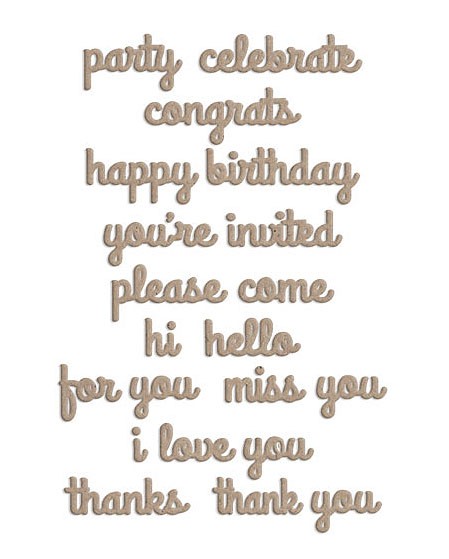 party celebrate
congrats
happy birthday
you're invited
please come
hi hello
for you miss you
i love you
thanks thank you